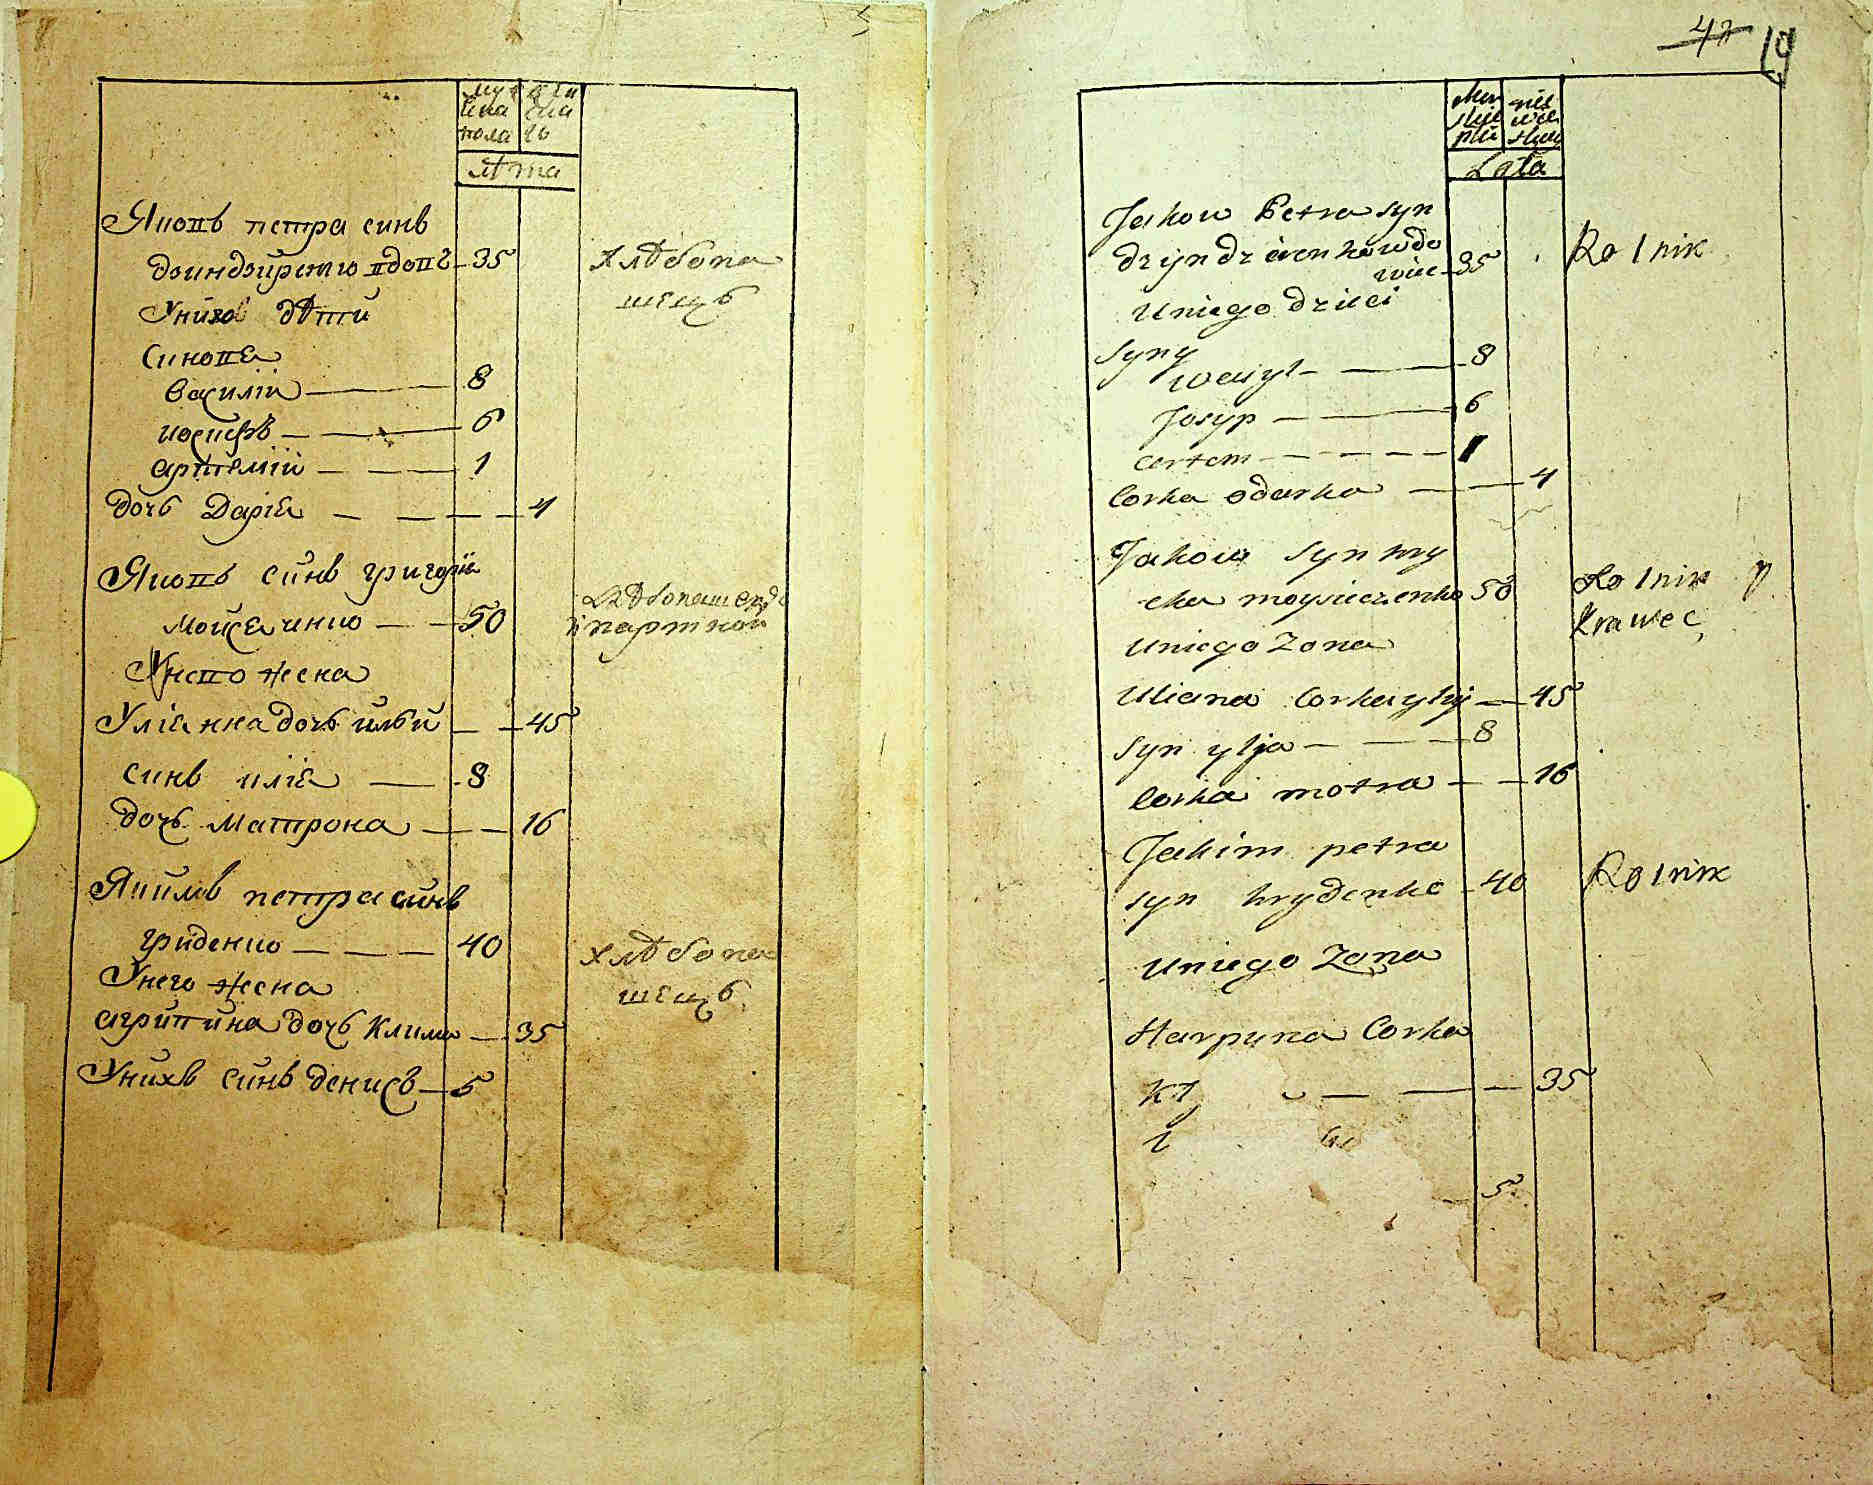 мужеска пола
женска
лѣта
Яковъ петра синъ
вдовъ 35 хлѣбопа
Унѣго дѣтй шецъ
Синове
Василій 8
иосифъ 6
артемій 1
дочь Даріа 4
Яковъ синъ григоріа
мойсеенко 50 хлѣбопашецъ
й партной
Унего жена
Уліанна дочь ильй 45
синъ иліа 8
дочь Матрона 16
Якимъ петра синъ
гриденко 40 хлѣбопа
Унего жена шецъ
агрипйна дочь Клима 35
Унихъ синъ денисъ 5
47 19
Lata
Jakow Petra syn
35 Rolnik
Uniego dzieci
syny
wasyl 8
Josyp 6
artem 1
Corka odarka 4
Jakow Syn hry
cka moysieczenko 50 Rolnik
Krawec
Uniego Zona
Uliana Corka ylyj 45
Syn ylja 8
Corka motra 16
Jakim petra
syn hrydenko 40 Rolnik
Uniego Zona
Harpuna Corka
Kl 35
5